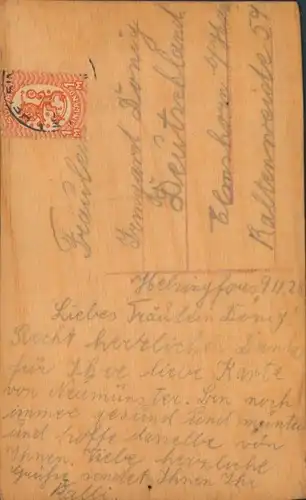 Fräulein
Irmgard König
Deutschland
Elmshorn
Kaltenweide 54
Helsingfors 9.11.2
Liebes Fräulein König!
Recht herzlichen Dank
für Ihre liebe Karte
von Neumünster. Bin noch
immer gesund und munter
und hoffe dasselbe von
Ihnen. Viele herzliche
Grüße sendet Ihnen Ihr